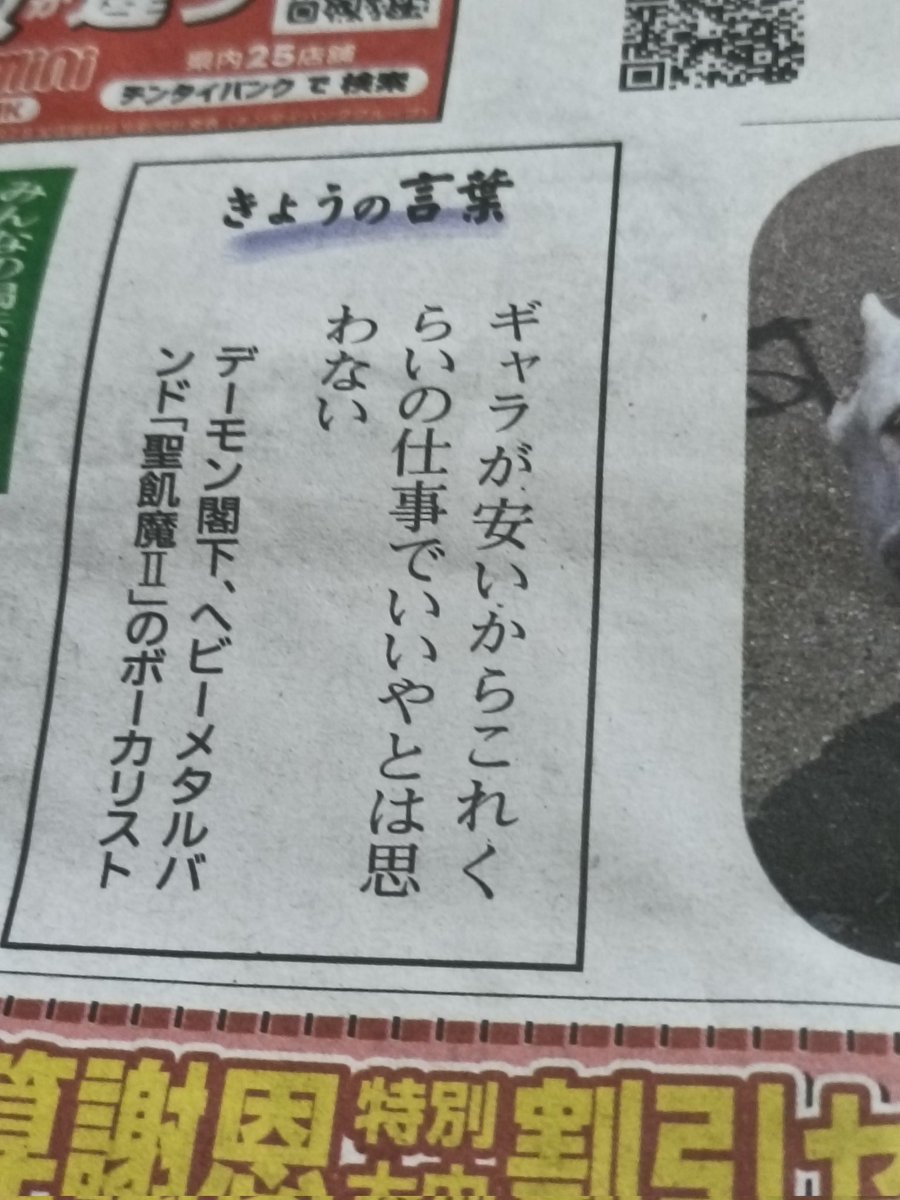 県内25店舗
チンタイバンクで検索
きょうの言葉
ギャラが安いからこれく
らいの仕事でいいやとは思
わない
デーモン閣下、ヘビーメタルバ
ンド「聖飢魔Ⅱ」のボーカリスト
謝恩
特別
割引セ